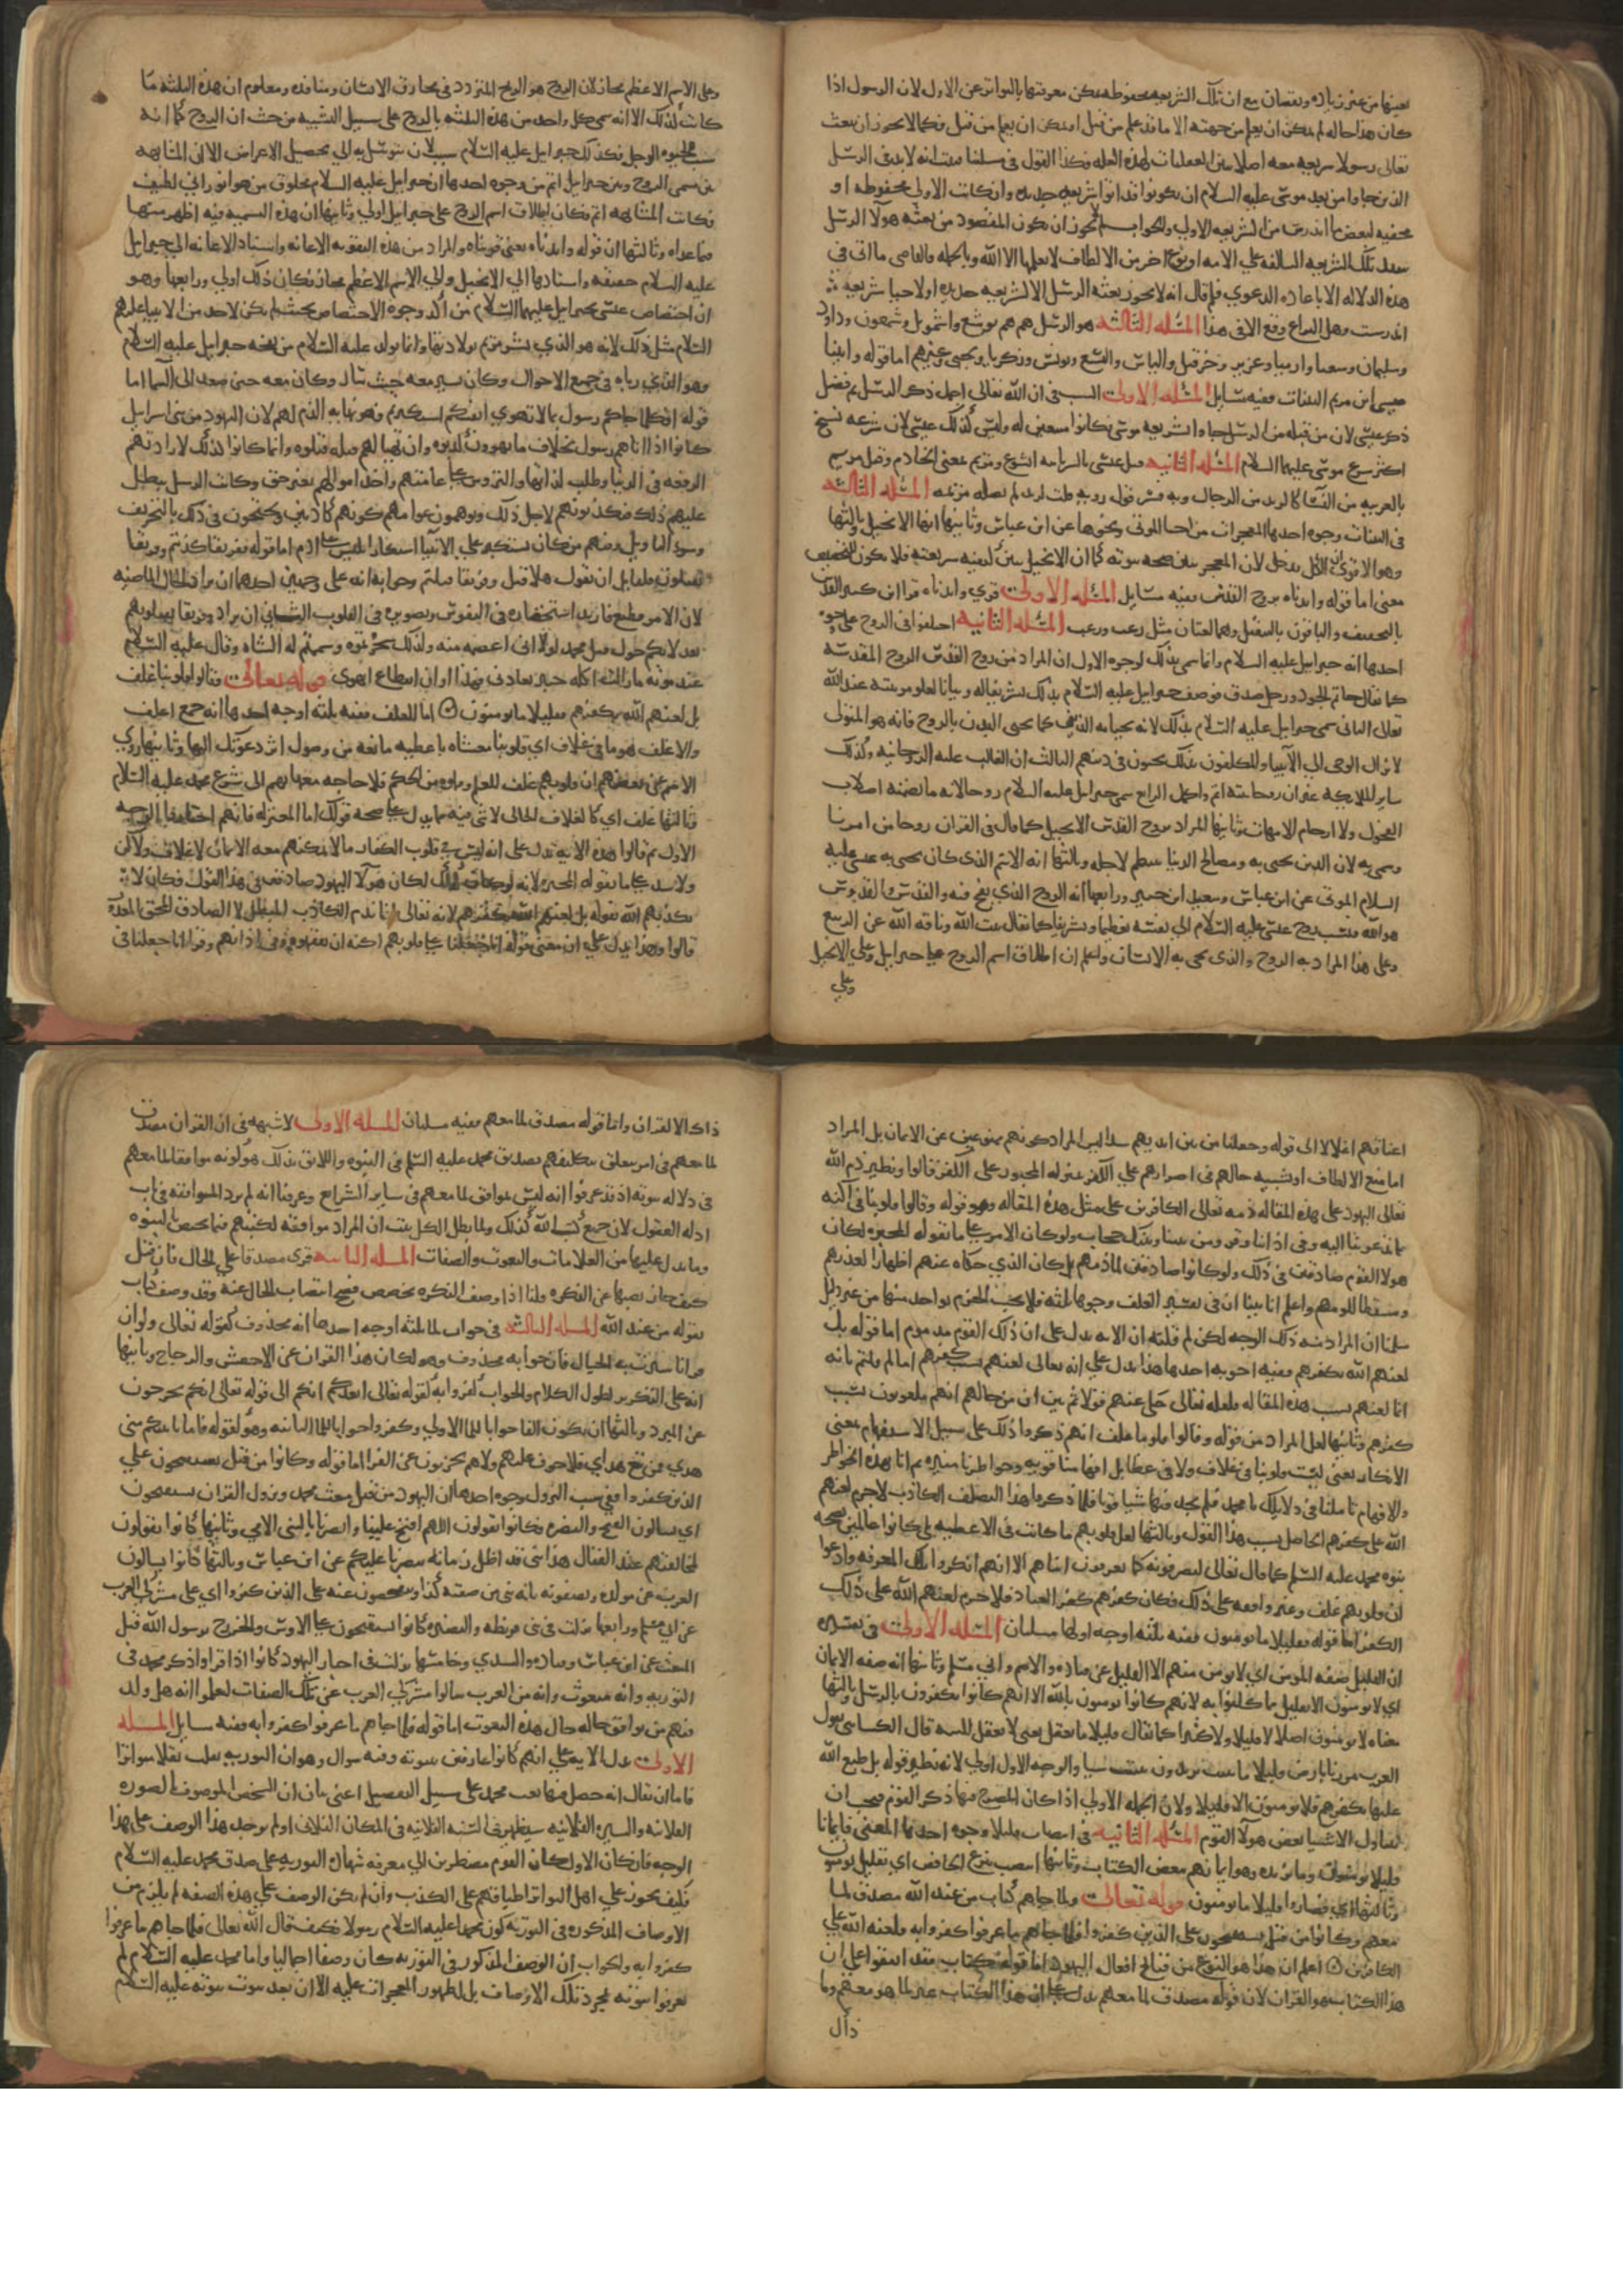 بعينها من غير زياده ونقصان مع ان تلك الشريعه محفوظه يمكن معرفتها بالتواتر عن الاول لان الرسول اذا
كان هذا حاله لم يمكن ان يعلم من جهته الا ما قد علم من قبل او يمكن ان يعلم من قبل فكما لا يجوز ان يبعث
تعالى رسولا لا شريعه معه اصلا بين العقليات لهذه العله فكذا القول في مسلتنا فثبت انه لا بد في الرسل
الذين جاوا من بعد موسى عليه السلام ان يكونوا قد اتوا بشريعه جديده وان كانت الاولى محفوظه او
محييه لبعض ما اندرس من الشريعه الاولى والجواب لم لا يجوز ان يكون المقصود من بعثه هولاء الرسل
تنفيذ تلك الشريعه السالفه على الامه او نوع اخر من الالطاف لا يعلمها الا الله وبالجمله فالقاضي ما اتى في
هذه الدلاله الا باعاده الدعوى فلم قال انه لا يجوز بعثه الرسل الا لشريعه جديده او لاحيا شريعه
اندرست وهل النزاع وقع الا في هذا المسله الثالثه هولا الرسل هم يوشع واشمويل وشمعون وداود
وسليمان وشعيا وارميا وعزير وحزقيل والياس واليسع ويونس وزكريا ويحيى وغيرهم اما قوله واتينا
عيسى ابن مريم البينات ففيه مسايل المسله الاولى السبب في ان الله تعالى اجمل ذكر الرسل ثم فصل
ذكر عيسى لان من قبله من الرسل جاوا بشريعه موسى فكانوا متبعين له وليس كذلك عيسى لان شرعه نسخ
اكثر شرع موسى عليهما السلام المسله الثانيه قيل عيسى بالسريانيه ايشوع ومريم بمعنى الخادم وقيل مريم
بالعربيه من النسا كالزير من الرجال وبه فسر قول روبه قلت لزير لم تصله مريمه المسله الثالثه
في البينات وجوه احدها المعجزات من احيا الموتى ونحوها عن ابن عباس وثانيها انها الانجيل وثالثها
وهو الاقوى ان الكل يدخل لان المعجز يبين صحه نبوته كما ان الانجيل يبين كيفيه شريعته فلا يكون للتخصيص
معنى اما قوله وايدناه بروح القدس ففيه مسايل المسله الاولى قرى وايدناه قرا ابن كثير القدس
بالتخفيف والباقون بالتثقيل وهما لغتان مثل رعب ورعب المسله الثانيه اختلفوا في الروح على وجوه
احدها انه جبرايل عليه السلام وانما سمي بذلك لوجوه الاول ان المراد من روح القدس الروح المقدسه
كما يقال حاتم الجود ورجل صدق فوصف جبرايل عليه السلام بذلك تشريفا له وبيانا لعلو مرتبته عند الله
تعالى الثاني سمي جبرايل عليه السلام بذلك لانه يحيا به الدين كما يحيى البدن بالروح فانه هو المتولى
لانزال الوحي الى الانبيا والمكلفون بذلك يحيون في دينهم الثالث ان الغالب عليه الروحانيه وكذلك
ساير الملايكه غير ان روحانيته اتم واكمل الرابع سمي جبرايل عليه السلام روحا لانه ما تضمنه اصلاب
الفحول ولا ارحام الامهات وثانيها المراد بروح القدس الانجيل كما قال في القران روحا من امرنا
وسمي به لان الدين يحيى به ومصالح الدنيا تنتظم لاجله وثالثها انه الاسم الذي كان يحيى به عيسى عليه
السلام الموتى عن ابن عباس وسعيد ابن جبير ورابعها انه الروح الذي نفخ فيه والقدس والقدوس
هو الله فنسب روح عيسى عليه السلام الى نفسه تعظيما وتشريفا كما يقال بيت الله وناقه الله عن الربيع
وعلى هذا المراد به الروح والذي يحيى به الانسان واعلم ان اطلاق اسم الروح على جبرايل وعلى الانجيل
وعلى
وعلى الاسم الاعظم مجاز لان الروح هو الريح المتردد في مخارق الانسان ومنافذه ومعلوم ان هذه الثلثه ما
كانت كذلك الا انه سمي كل واحد من هذه الثلثه بالروح على سبيل التشبيه من حيث ان الروح كما انه
سبب لحيوه الرجل فكذلك جبرايل عليه السلام سبب لان يتوسل به الى تحصيل الاعراض الا ان المشابهه
بين مسمى الروح وبين جبرايل اتم من وجوه احدها ان جبرايل عليه السلام مخلوق من هوا نوراني لطيف
فكانت المشابهه اتم فكان اطلاق اسم الروح على جبرايل اولى وثانيها ان هذه التسميه فيه اظهر منها
فيما عداه وثالثها ان قوله وايدناه يعني قويناه والمراد من هذه التقويه الاعانه واسناد الاعانه الى جبرايل
عليه السلام حقيقه واسنادها الى الانجيل والى الاسم الاعظم مجاز فكان ذلك اولى ورابعها وهو
ان اختصاص عيسى بجبرايل عليهما السلام من اكد وجوه الاختصاص بحيث لم يكن لاحد من الانبيا عليهم
السلام مثل ذلك لانه هو الذي بشر مريم بولادتها وانما تولد عليه السلام من نفخه جبرايل عليه السلام
وهو الذي رباه في جميع الاحوال وكان يسير معه حيث سار وكان معه حين صعد الى السما اما
قوله افكلما جاكم رسول بما لا تهوى انفسكم استكبرتم فهو نهايه الذم لهم لان اليهود من بني اسرايل
كانوا اذا اتاهم رسول بخلاف ما يهوون كذبوه وان تهيا لهم قتله قتلوه وانما كانوا كذلك لارادتهم
الرفعه في الدنيا وطلب لذاتها والترؤس على عامتهم واخذ اموالهم بغير حق وكانت الرسل تبطل
عليهم ذلك فيكذبونهم لاجل ذلك ويوهمون عوامهم كونهم كاذبين ويحتجون في ذلك بالتحريف
وسوء التاويل ومنهم من كان يستكبر على الانبيا استكبار ابليس على ادم اما قوله ففريقا كذبتم وفريقا
تقتلون فلقايل ان يقول هلا قيل وفريقا قتلتم وجوابه انه على وجهين احدهما ان يراد الحال الماضيه
لان الامر فظيع فاريد استحضاره في النفوس وتصويره في القلوب الثاني ان يراد وفريقا تقتلونهم
بعد لانكم حول قتل محمد لولا اني اعصمه منه ولذلك سحرتموه وسممتم له الشاه وقال عليه السلام
عند موته ما زالت اكله خيبر تعادني فهذا اوان انقطاع ابهري قوله تعالى وقالوا قلوبنا غلف
بل لعنهم الله بكفرهم فقليلا ما يومنون اما الغلف ففيه ثلثه اوجه احدها انه جمع اغلف
والاغلف هو ما في غلاف اي قلوبنا مغشاه باغطيه مانعه من وصول اثر دعوتك اليها وثانيها روى
الاصم عن بعضهم ان قلوبهم غلف للعلم وملوه من الحكم فلا حاجه معها بهم الى شرع محمد عليه السلام
وثالثها غلف اي كالغلاف الخالي لا شى فيه مما يدل على صحه قولك اما المعتزله فانهم اختاروا الوجه
الاول ثم قالوا هذه الايه تدل على انه ليس في قلوب الكفار ما لا يمكنهم معه الايمان لا غلاف ولا كن
ولا سد على ما يقوله المجبره لانه لو كان كذلك لكان هولا اليهود صادقين في هذا القول فكان لا
يكذبهم الله بقوله بل لعنهم الله بكفرهم لانه تعالى انما يذم الكاذب المبطل لا الصادق المحق المعذور
قالوا وهذا يدل على ان معنى قوله انا جعلنا على قلوبهم اكنه ان يفقهوه وفي اذانهم وقرا انا جعلنا في
اعناقهم اغلالا الى قوله وجعلنا من بين ايديهم سدا ليس المراد كونهم ممنوعين عن الايمان بل المراد
اما منع الالطاف او تشبيه حالهم في اصرارهم على الكفر بمنزله المجبور على الكفر قالوا ونظير ذم الله
تعالى اليهود على هذه المقاله ذمه تعالى الكافرين على مثل هذه المقاله وهو قوله وقالوا قلوبنا في اكنه
مما تدعونا اليه وفي اذاننا وقر ومن بيننا وبينك حجاب ولو كان الامر على ما يقوله المجبره لكان
هولا القوم صادقين في ذلك ولو كانوا صادقين لما ذمهم بل كان الذي حكاه عنهم اظهارا لعذرهم
ومسقطا للومهم واعلم انا بينا ان في تفسير الغلف وجوها ثلثه فلا يجب الجزم بواحد منها من غير دليل
سلمنا ان المراد منه ذلك الوجه لكن لم قلت ان الايه تدل على ان ذلك القوم مذموم اما قوله بل
لعنهم الله بكفرهم ففيه اجوبه احدها هذا يدل على انه تعالى لعنهم بسبب كفرهم اما لم قلتم بانه
انما لعنهم بسبب هذه المقاله فلعله تعالى حكى عنهم قولا ثم بين ان من حالهم انهم ملعونون بسبب
كفرهم وثانيها لعل المراد من قوله وقالوا قلوبنا غلف انهم ذكروا ذلك على سبيل الاستفهام بمعنى
الانكار يعني ليست قلوبنا في غلاف ولا في غطا بل افهامنا قويه وخواطرنا منيره ثم انا بهذه الخواطر
والافهام تاملنا في دلايلك يا محمد فلم نجد منها شيا قويا فلما ذكروا هذا التصلف الكاذب لا جرم لعنهم
الله على كفرهم الحاصل بسبب هذا القول وثالثها لعل قلوبهم ما كانت في الاغطيه بل كانوا عالمين بصحه
نبوه محمد عليه السلم كما قال تعالى يعرفونه كما يعرفون ابناهم الا انهم انكروا تلك المعرفه وادعوا
ان قلوبهم غلف وغير واقفه على ذلك فكان كفرهم كفر العناد فلا جرم لعنهم الله على ذلك
الكفر اما قوله فقليلا ما يومنون ففيه ثلثه اوجه اولها مسلتان المسله الاولى في تفسيره
ان القليل صفه المومن اي لا يومن منهم الا القليل عن قتاده والاصم وابي مسلم وثانيها انه صفه الايمان
اي لا يومنون الا بقليل مما كلفوا به لانهم كانوا يومنون بالله الا انهم كانوا يكفرون بالرسل وثالثها
معناه لا يومنون اصلا لا قليلا ولا كثيرا كما يقال قليلا ما يفعل يعني لا يفعل البته قال الكسائي يقول
العرب مررنا بارض قليلا ما تنبت يريدون لا تنبت شيا والوجه الاول اولى لانه نظير قوله بل طبع الله
عليها بكفرهم فلا يومنون الا قليلا ولان الجمله الاولى اذا كان المصرح فيها ذكر القوم فيجب ان
يتناول الاستثنا بعض هولا القوم المسله الثانيه في انتصاب قليلا وجوه احدها المعنى فايمانا
قليلا يومنون وما مزيده وهو ايمانهم ببعض الكتاب وثانيها انتصب بنزع الخافض اي بقليل يومنون
وثالثها اي فصاروا قليلا ما يومنون قوله تعالى ولما جاهم كتاب من عند الله مصدق لما
معهم وكانوا من قبل يستفتحون على الذين كفروا فلما جاهم ما عرفوا كفروا به فلعنه الله على
الكافرين اعلم ان هذا هو النوع من قبائح افعال اليهود اما قوله كتاب فقد اتفقوا على ان
هذا الكتاب هو القران لان قوله مصدق لما معهم يدل على ان هذا الكتاب غير لما هو معهم وما
ذاك
ذاك الا القران واما قوله مصدق لما معهم ففيه مسلتان المسله الاولى لا شبهه في ان القران مصدق
لما معهم في امر يتعلق بتكليفهم بتصديق محمد عليه السلم في النبوه واللايق بذلك هو كونه موافقا لما معهم
في دلاله نبوته اذ قد عرفوا انه ليس بموافق لما معهم في ساير الشرائع وعرفنا انه لم يرد الموافقه في باب
ادله العقول لان جميع كتب الله كذلك ولما بطل الكل ثبت ان المراد موافقه لكتبهم فيما يختص بالنبوه
وما يدل عليها من العلامات والنعوت والصفات المسله الثانيه قرى مصدقا على الحال فان قيل
كيف جاز نصبها عن النكره قلنا اذا وصف النكره تخصص فصح انتصاب الحال عنه وقد وصف كتاب
بقوله من عند الله المسله الثالثه في جواب لما ثلثه اوجه احدها انه محذوف كقوله تعالى ولو ان
قرانا سيرت به الجبال فان جوابه محذوف وهو لكان هذا القران عن الاخفش والزجاج وثانيها
انه على التكرير لطول الكلام والجواب كفروا به كقوله تعالى ايعدكم انكم الى قوله تعالى انكم مخرجون
عن المبرد وثالثها ان يكون الفا جوابا للما الاولى وكفروا جوابا للما الثانيه وهو كقوله فاما ياتينكم مني
هدى فمن تبع هداي فلا خوف عليهم ولا هم يحزنون عن الفرا اما قوله وكانوا من قبل يستفتحون على
الذين كفروا ففي سبب النزول وجوه احدها ان اليهود من قبل مبعث محمد ونزول القران يستفتحون
اي يسالون الفتح والنصره وكانوا يقولون اللهم افتح علينا وانصرنا بالنبي الامي وثانيها كانوا يقولون
لمخالفيهم عند القتال هذا نبي قد اظل زمانه ينصرنا عليكم عن ابن عباس وثالثها كانوا يسالون
العرب عن مولده ويصفونه بانه نبي من صفته كذا ويتفحصون عنه على الذين كفروا اي على مشركي العرب
عن ابي مسلم ورابعها نزلت في بني قريظه والنضير كانوا يستفتحون على الاوس والخزرج برسول الله قبل
المبعث عن ابن عباس وقتاده والسدي وخامسها نزلت في احبار اليهود كانوا اذا قراوا ذكر محمد في
التوريه وانه مبعوث وانه من العرب سالوا مشركي العرب عن تلك الصفات ليعلموا انه هل ولد
فيهم من يوافق حاله حال هذه النعوت اما قوله فلما جاهم ما عرفوا كفروا به ففيه مسايل المسله
الاولى تدل الايه على انهم كانوا عارفين بنبوته وفيه سوال وهو ان التوريه نقلت نقلا متواترا
فاما ان يقال انه حصل فيها نعت محمد على سبيل التفصيل اعني بيان ان الشخص الموصوف بالصوره
الفلانيه والسيره الفلانيه سيظهر في السنه الفلانيه في المكان الفلاني او لم يوجد هذا الوصف على هذا
الوجه فان كان الاول كان القوم مضطرين الى معرفه شهاده التوريه على صدق محمد عليه السلام
فكيف يجوز على اهل التواتر اطباقهم على الكذب وان لم يكن الوصف على هذه الصفه لم يلزم من
الاوصاف المذكوره في التوريه كون محمد عليه السلام رسولا فكيف قال الله تعالى فلما جاهم ما عرفوا
كفروا به والجواب ان الوصف المذكور في التوريه كان وصفا اجماليا واما محمد عليه السلام لم
يعرفوا نبوته بمجرد تلك الاوصاف بل لظهور المعجزات عليه الا ان بعد ثبوت نبوته عليه السلام